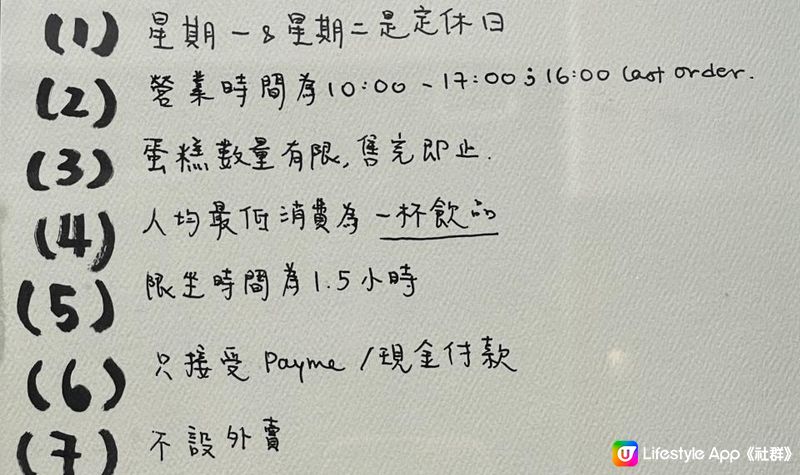 (1) 星期一&星期二是定休日
(2) 營業時間為10:00 - 17:00;16:00 Last order.
(3) 蛋糕數量有限,售完即止.
(4) 人均最低消費為一杯飲品
(5) 限坐時間為1.5小時
(6) 只接受 Payme /現金付款
(7) 不設外賣
U Lifestyle App《社群》